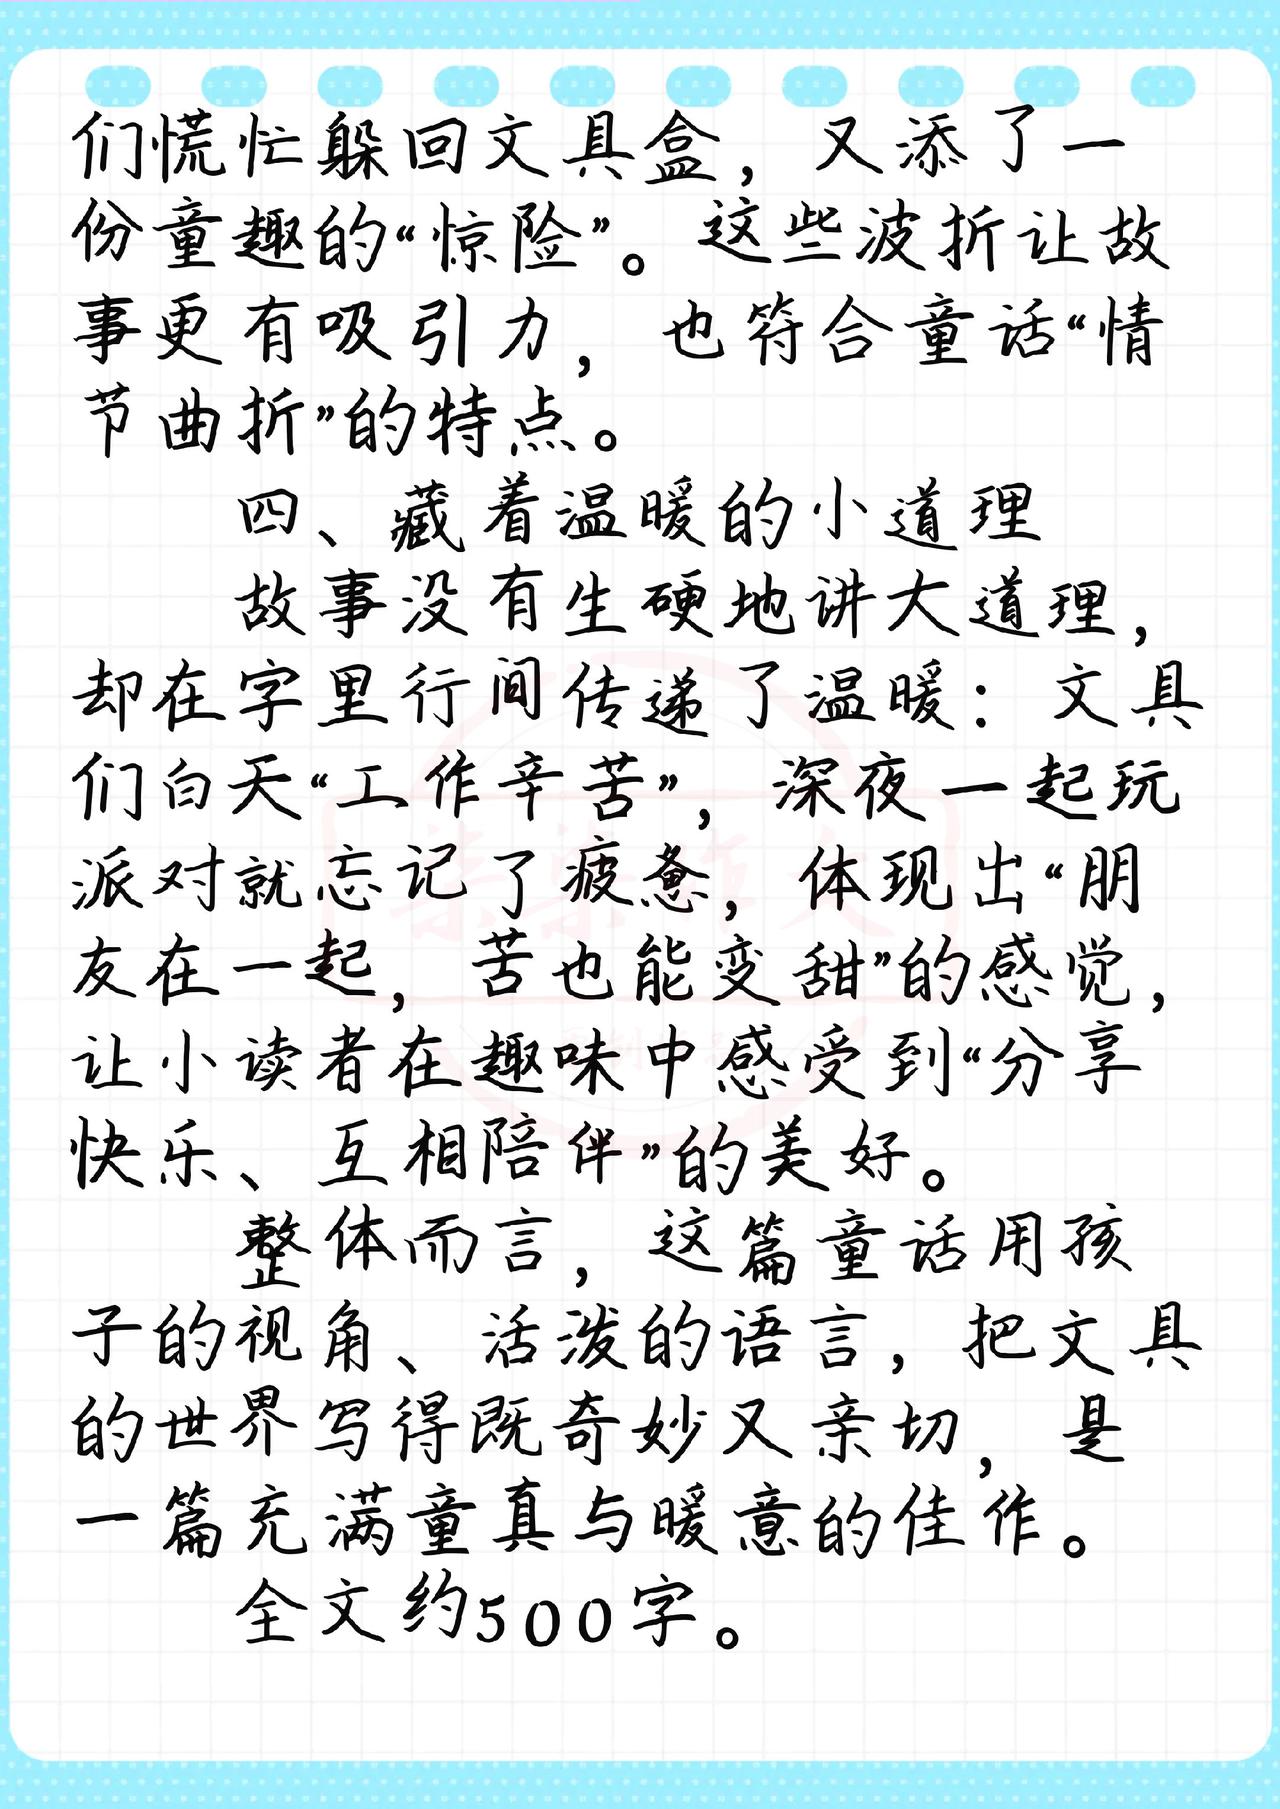 们慌忙躲回文具盒，又添了一
份童趣的“惊险”。这些波折让故
事更有吸引力，也符合童话“情
节曲折”的特点。
四、藏着温暖的小道理
故事没有生硬地讲大道理，
却在字里行间传递了温暖：文具
们白天“工作辛苦”，深夜一起玩
派对就忘记了疲惫，体现出“朋
友在一起，苦也能变甜”的感觉，
让小读者在趣味中感受到“分享
快乐、互相陪伴”的美好。
整体而言，这篇童话用孩
子的视角、活泼的语言，把文具
的世界写得既奇妙又亲切，是
一篇充满童真与暖意的佳作。
全文约500字。